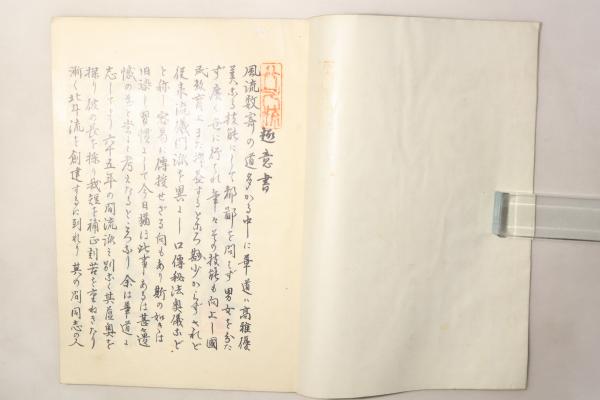 趣意書
風流数寄の道多かる中に華道は高雅優
美なる技能にして都鄙を問はず男女を分た
ず広く世に行はれ年々その技能も向上し国
民教育上また裨益するところ尠少からずされど
従来流儀門派を異にし口傳秘法奥儀など
と称し容易に傳授せざる向もあり斯の如きは
旧染の習慣にして今日猶ほ此事あるは甚遺
憾の至と常に考へたるところなり余は華道に
志してより六十五年の間流派の別なく其蘊奥を
探り彼の長を採り我短を補正刻苦を重ねきたり
漸く北斗流を創建するに到れり其の間同志の人